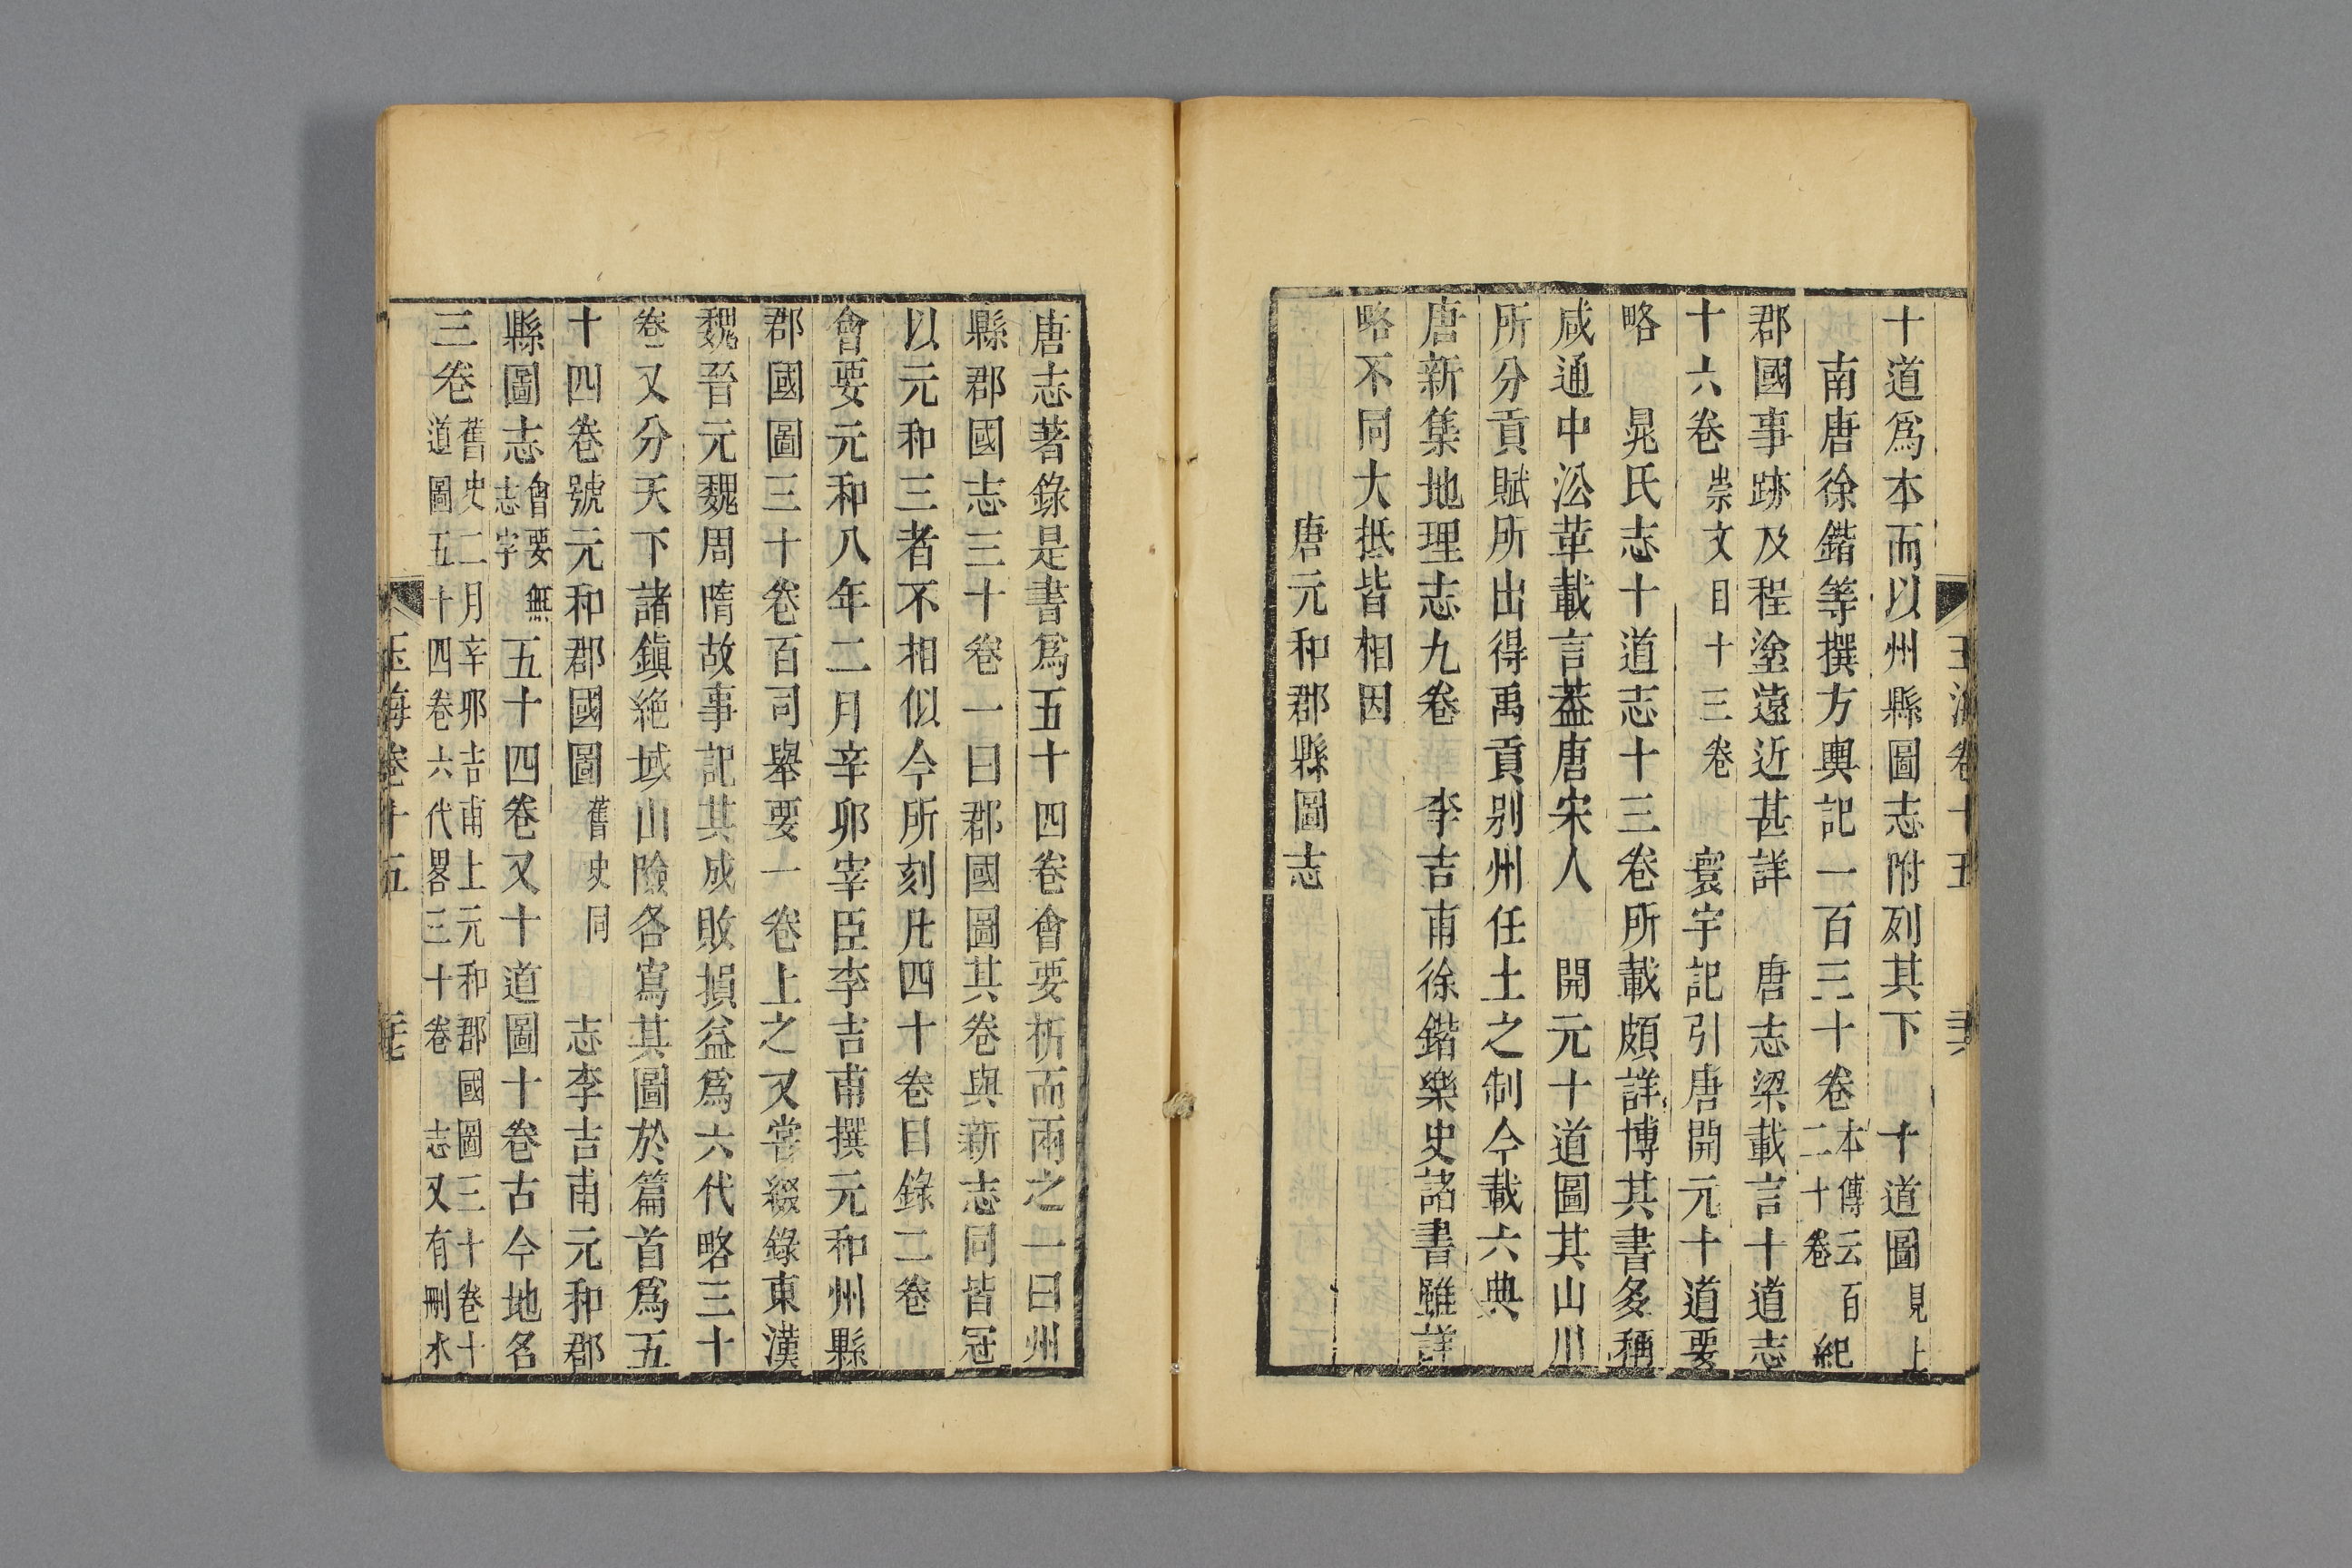 十道爲本而以州縣圖志附列其下 十道圖見上
南唐徐鍇等撰方輿記一百三十卷本傳云百二十卷 紀
郡國事跡及程塗遠近甚詳 唐志梁載言十道志
十六卷崇文目十三卷 寰宇記引唐開元十道要
略 晁氏志十道志十三卷所載頗詳博其書多稱
咸通中沿革載言蓋唐宋人 開元十道圖其山川
所分貢賦所出得禹貢别州任土之制今載六典
唐新集地理志九卷 李吉甫徐鍇樂史諸書雖詳
略不同大抵皆相因
唐元和郡縣圖志
唐志著錄是書爲五十四卷會要析而兩之一曰州
縣郡國志三十卷一曰郡國圖其卷與新志同皆冠
以元和三者不相似今所刻凡四十卷目錄二卷
會要元和八年二月辛卯宰臣李吉甫撰元和州縣
郡國圖三十卷百司舉要一卷上之又嘗綴錄東漢
魏晉元魏周隋故事記其成敗損益爲六代略三十
卷又分天下諸鎮絶域山險各寫其圖於篇首爲五
十四卷號元和郡國圖舊史同 志李吉甫元和郡
縣圖志會要無志字五十四卷又十道圖十卷古今地名
三卷舊史二月辛卯吉甫上元和郡國圖三十卷十道圖五十四卷六代畧三十卷 志又有刪水
玉海卷十五